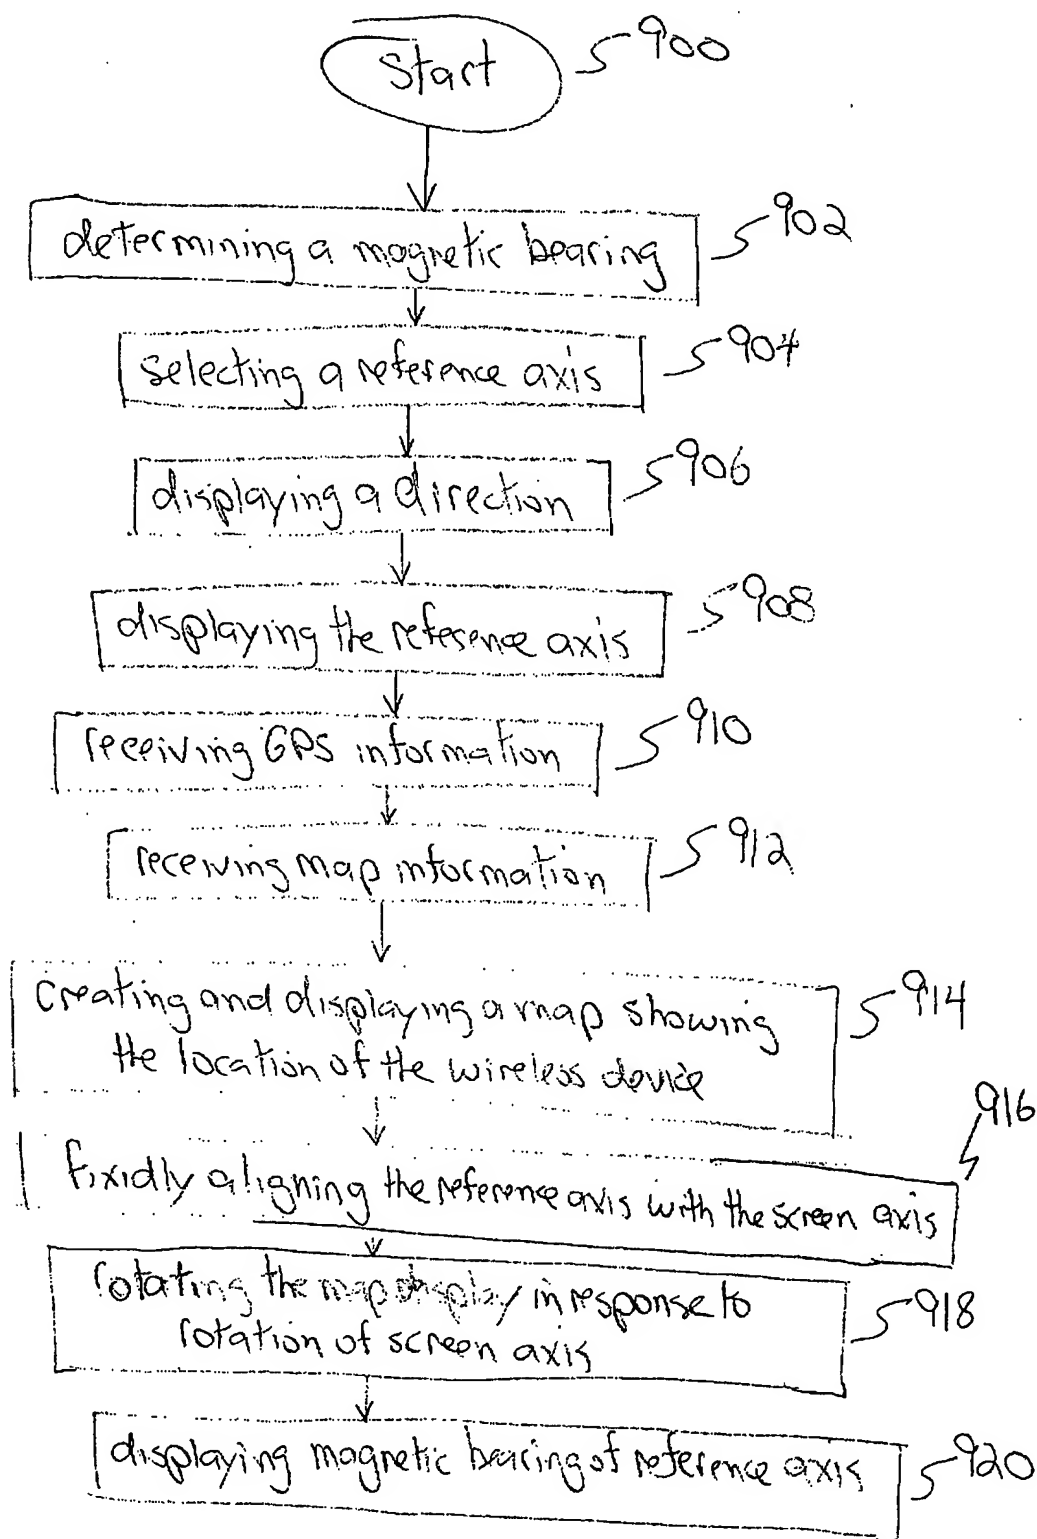 Start 900
determining a magnetic bearing 902
selecting a reference axis 904
displaying a direction 906
displaying the reference axis 908
receiving GPS information 910
receiving map information 912
Creating and displaying a map showing 914
the location of the wireless device
916
fixidly aligning the reference axis with the screen axis
rotating the map display in response to
rotation of screen axis 918
displaying magnetic bearing of reference axis 920